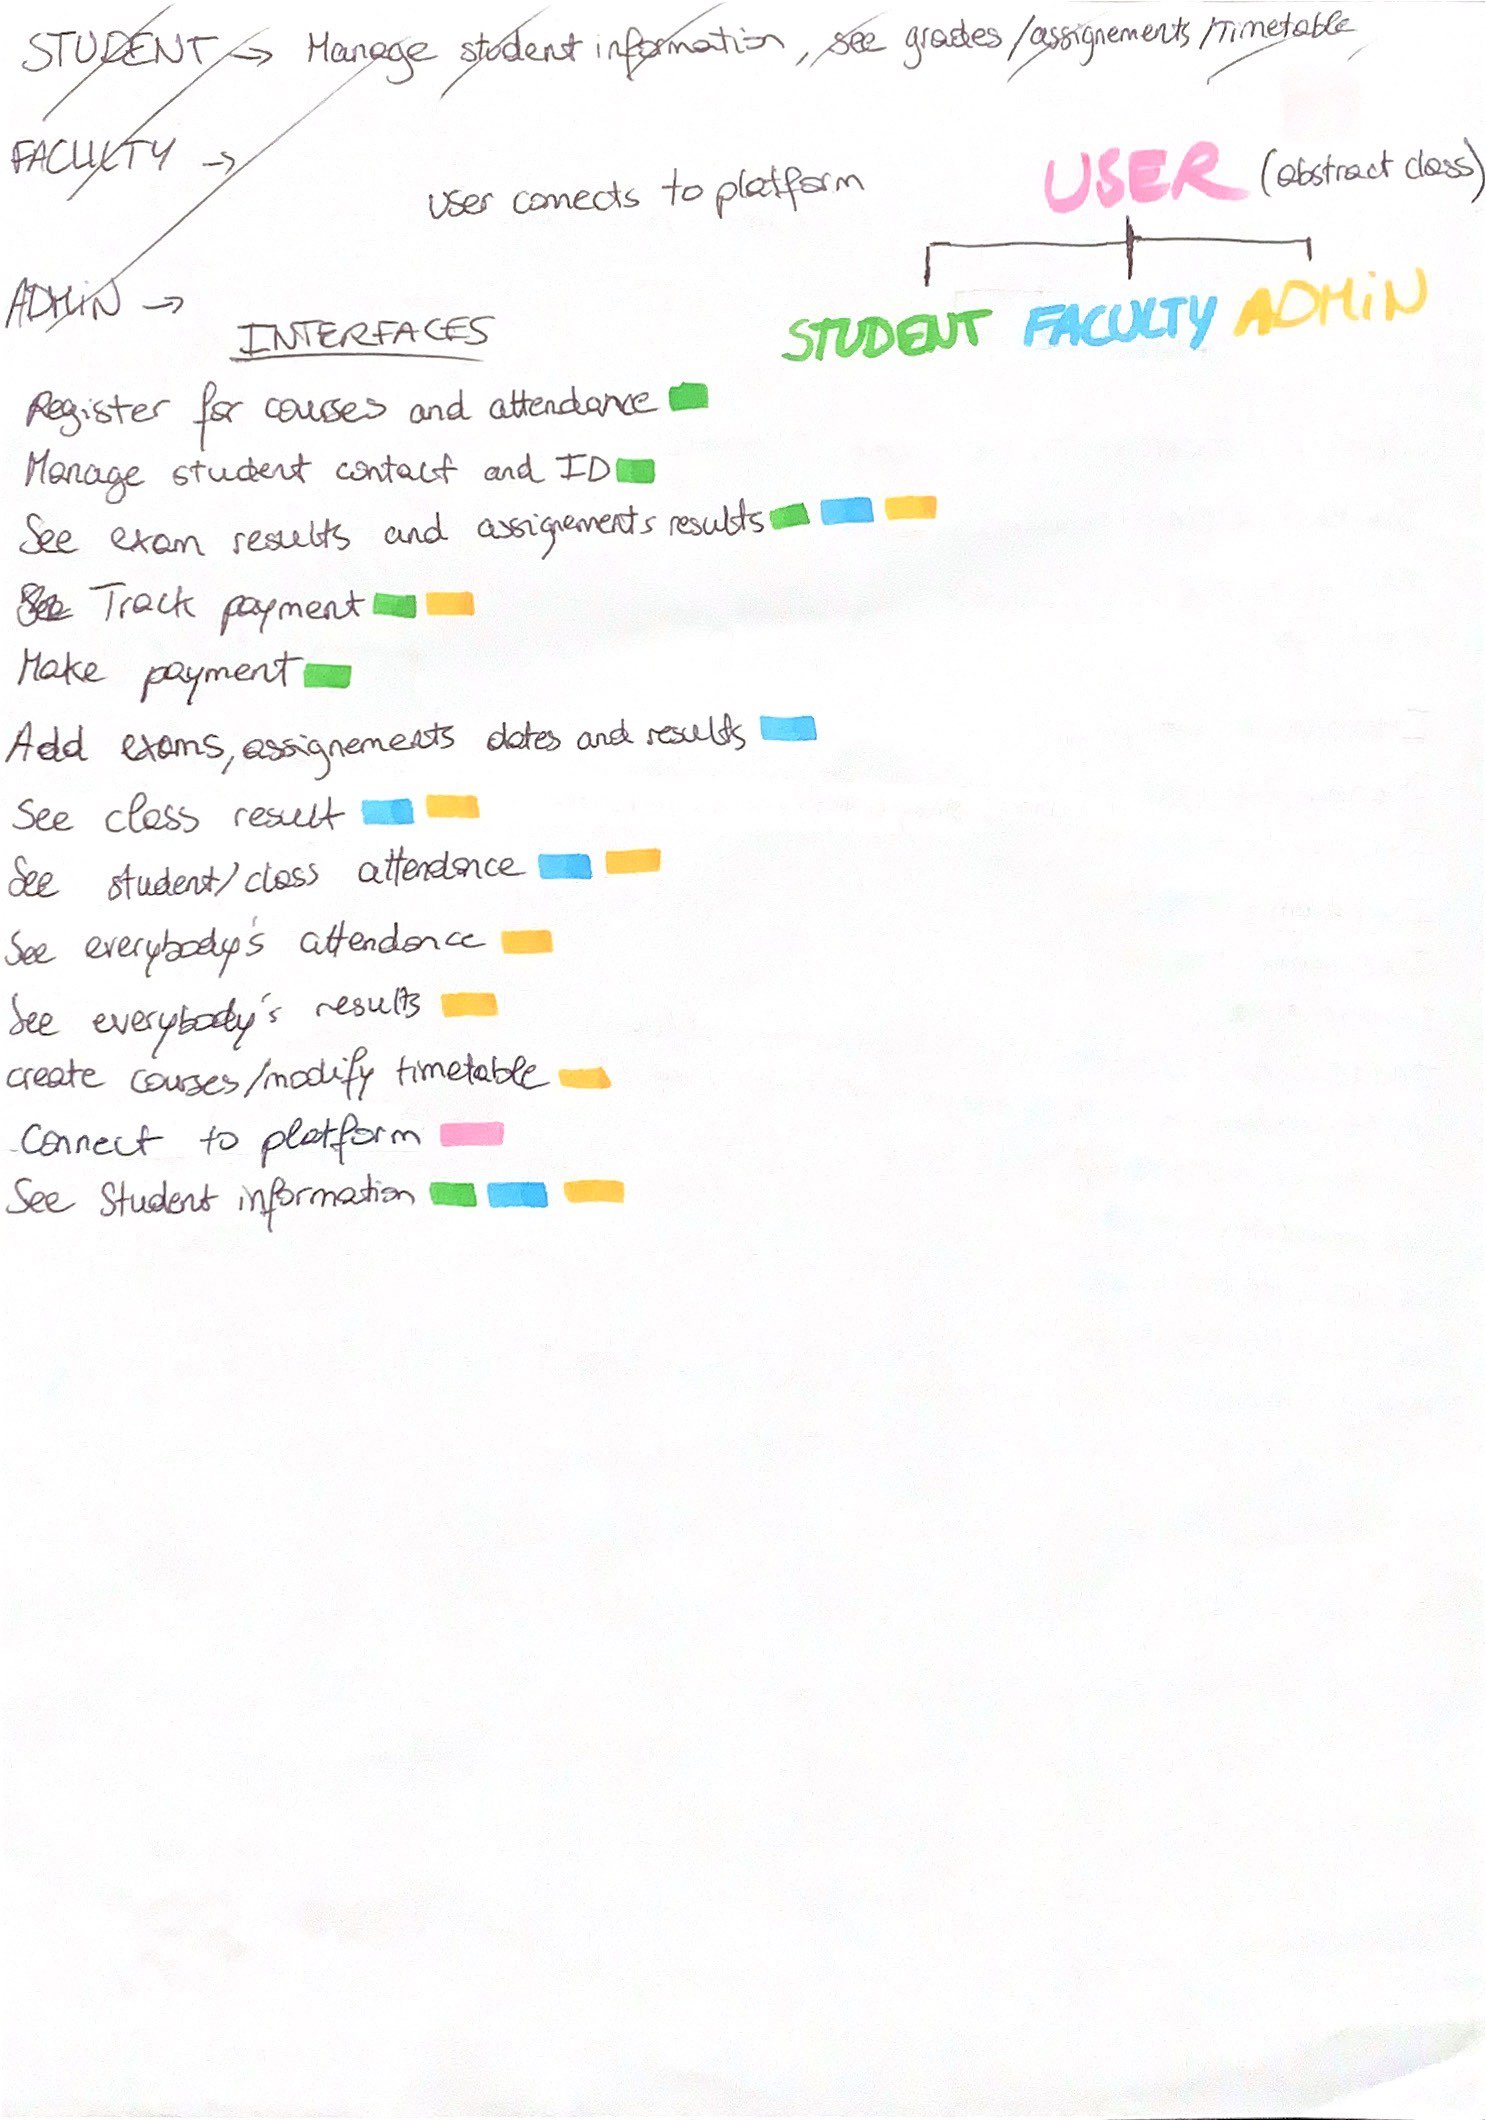 STUDENT → Manage student information, see grades/assignements/Timetable
FACULTY →
User connects to platform
USER (abstract class)
ADMiN →
STUDENT FACULTY ADMiN
INTERFACES
Register for courses and attendance
Manage student contact and ID
See exam results and assignements results
See Track payment
Make payment
Add exams, assignements dates and results
See class result
See student/class attendance
See everybody's attendance
See everybody's results
create courses/modify timetable
Connect to platform
See Student information